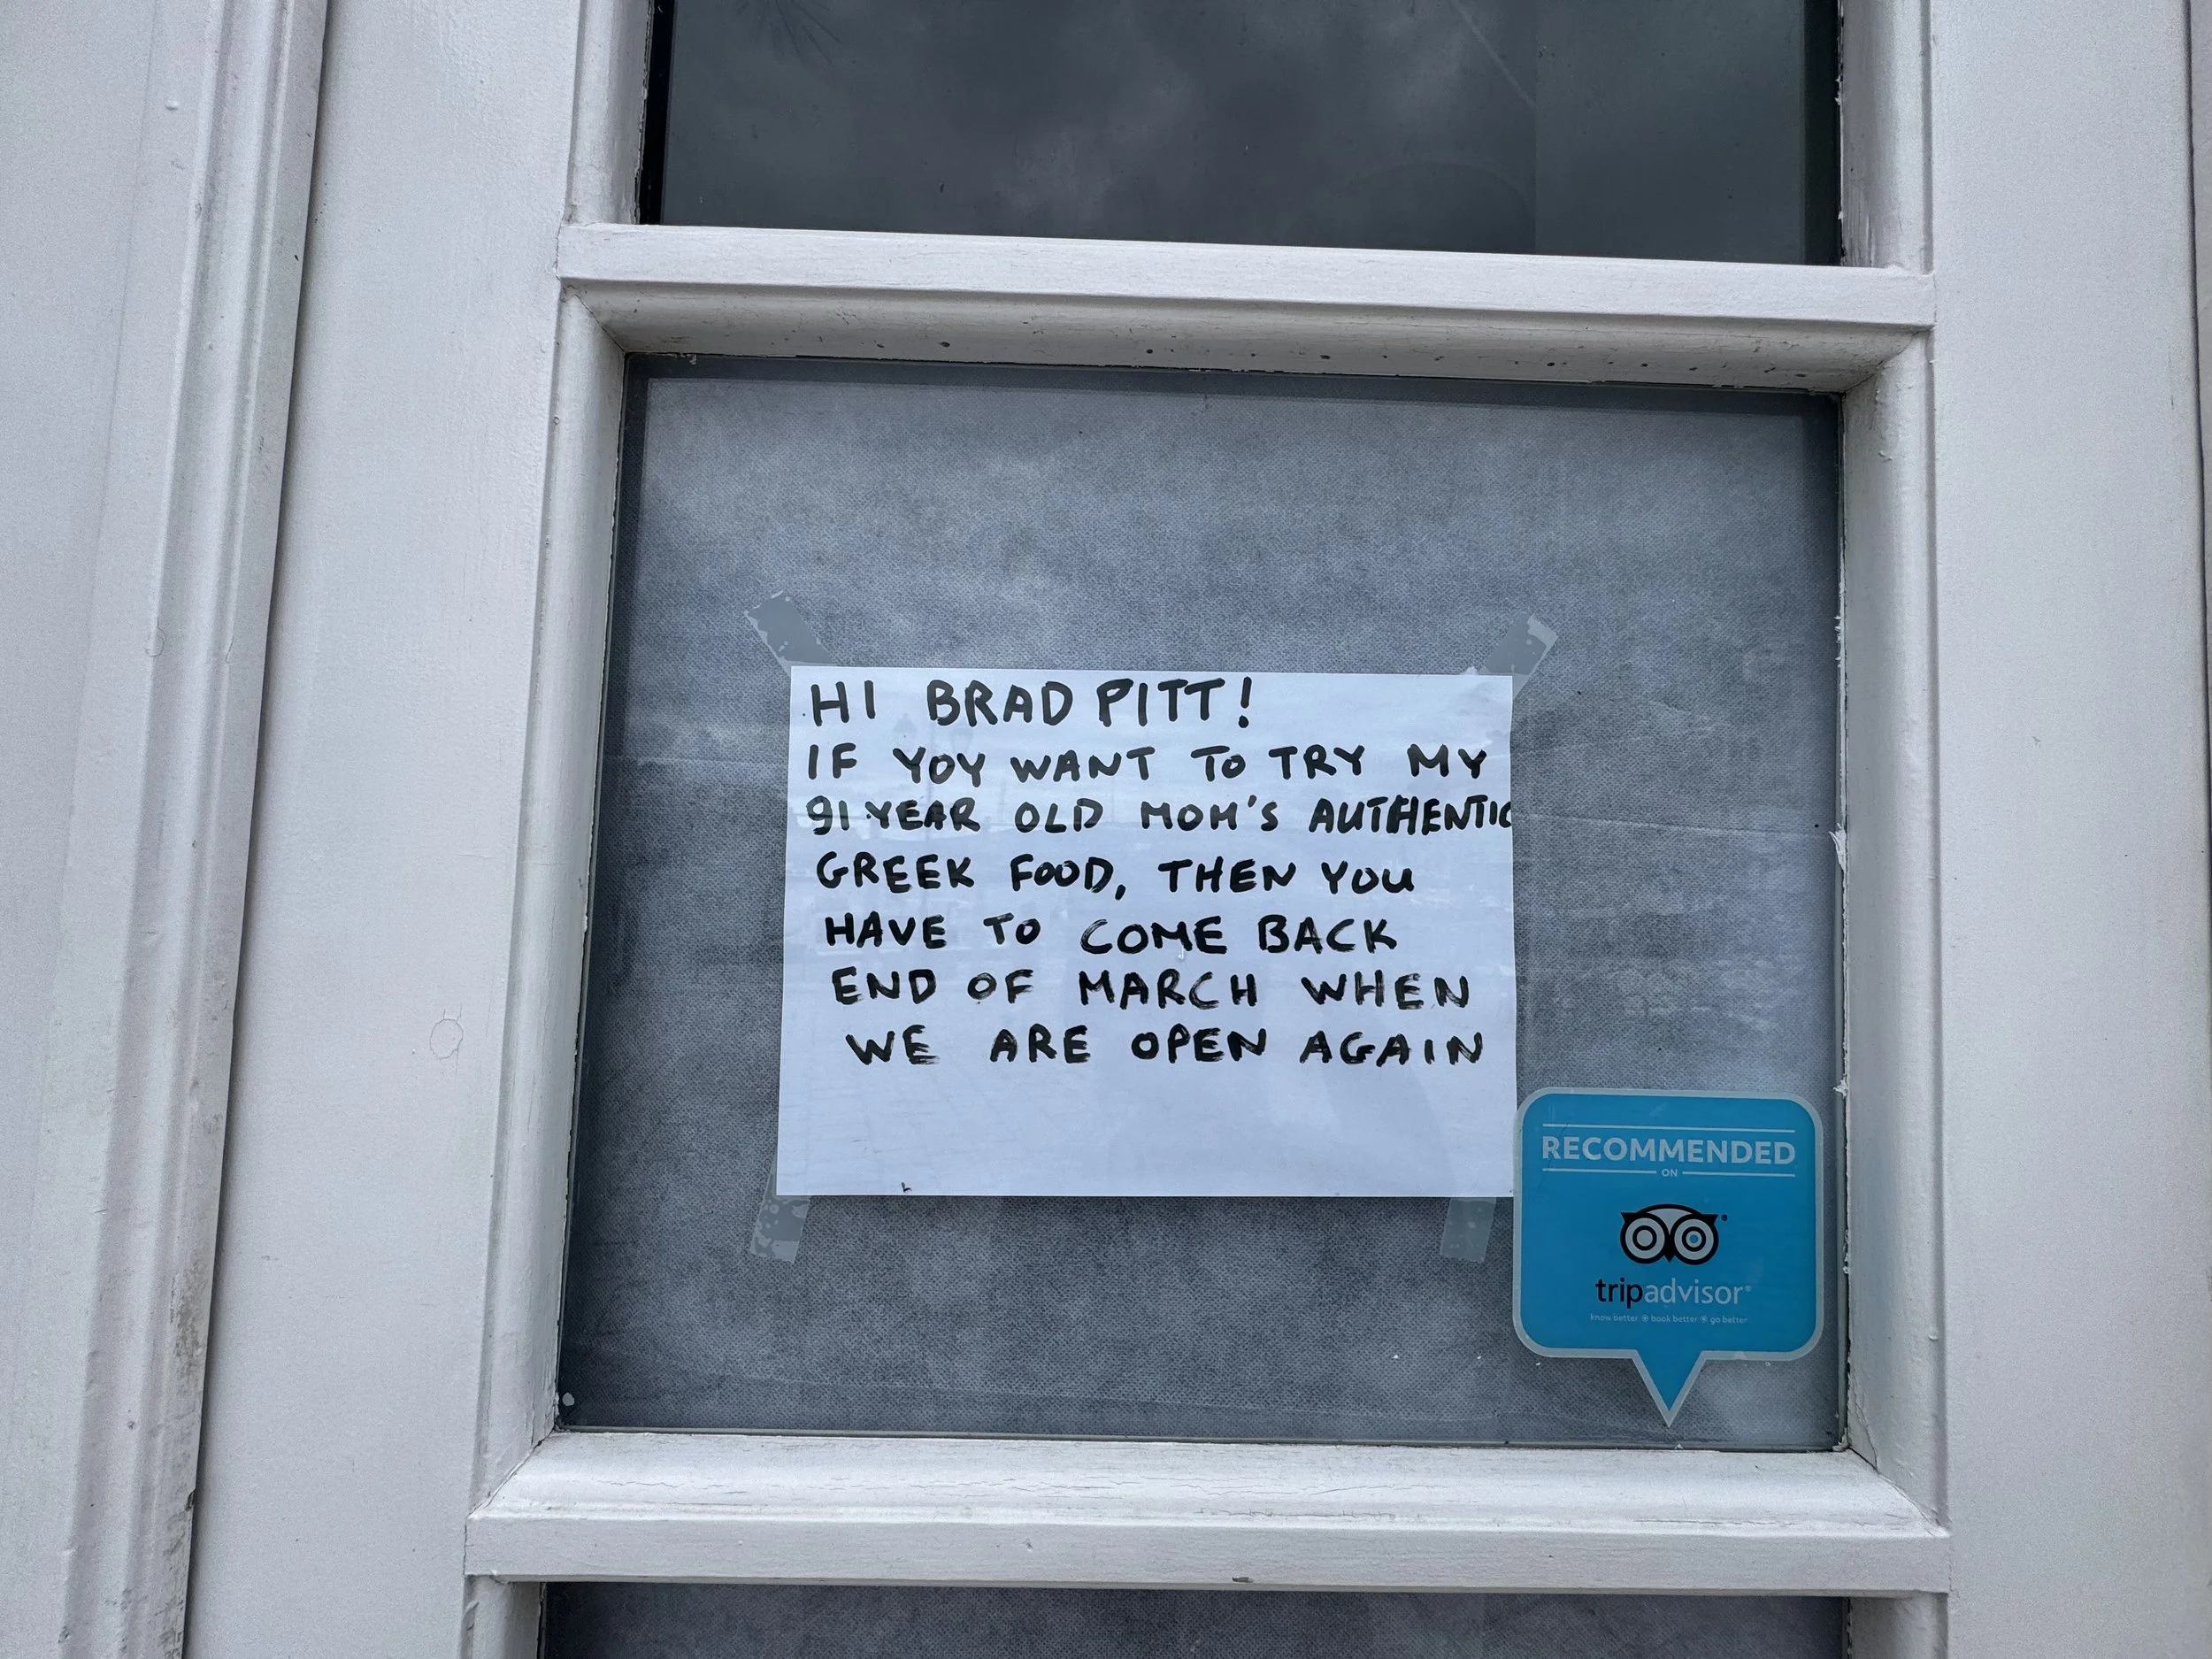 HI BRAD PITT!
IF YOY WANT TO TRY MY
91 YEAR OLD MOM'S AUTHENTIC
GREEK FOOD, THEN YOU
HAVE TO COME BACK
END OF MARCH WHEN
WE ARE OPEN AGAIN
RECOMMENDED
ON
tripadvisor®
know better book better go better